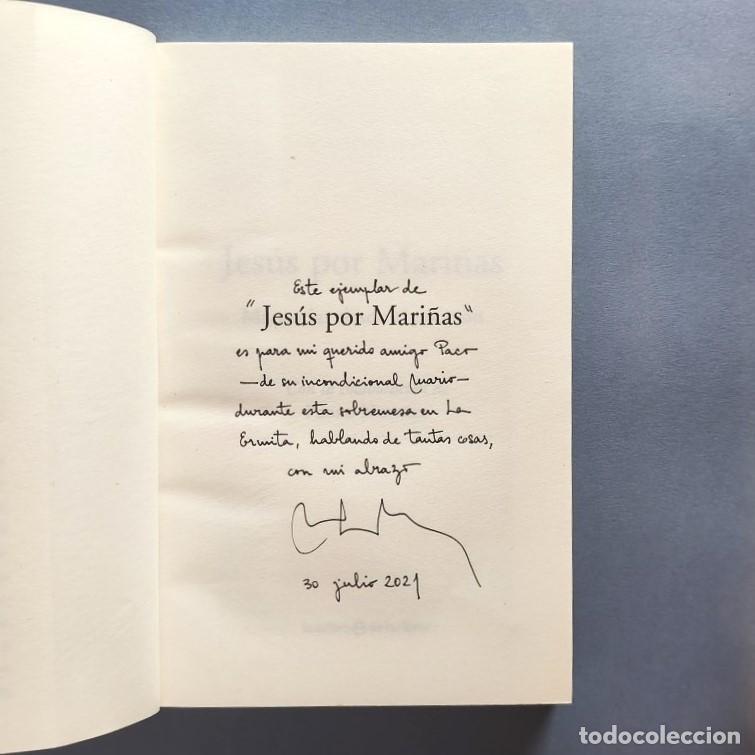 Este ejemplar de
"Jesús por Mariñas"
es para mi querido amigo Paco
—de su incondicional Mario—
durante esta sobremesa en La
Ermita, hablando de tantas cosas,
con mi abrazo
30 julio 2021
todocoleccion